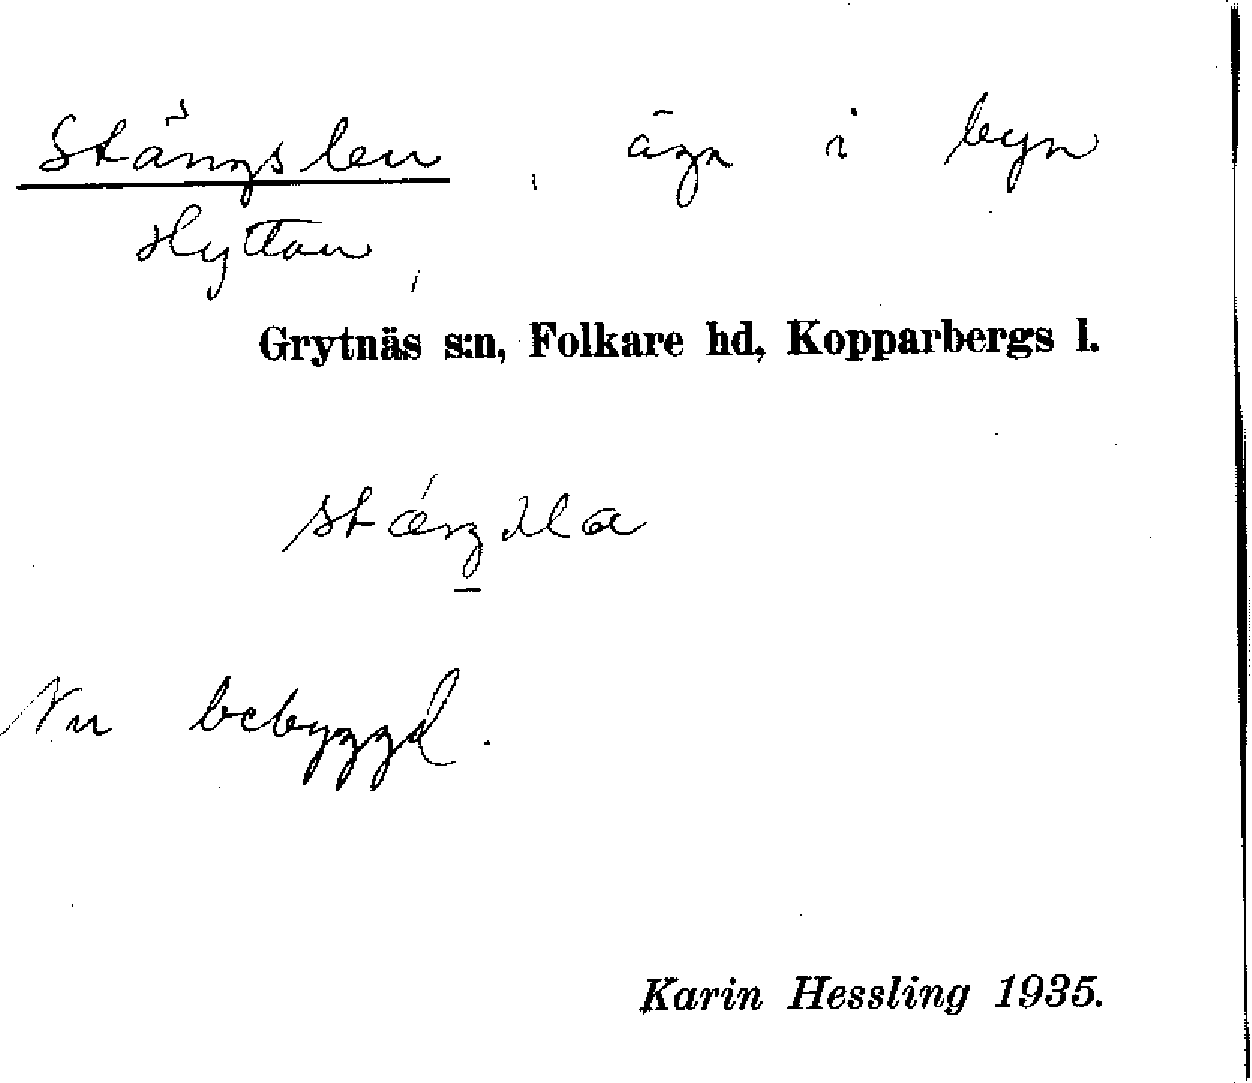 Stängslen, ägn i byn
Hyttan,
Grytnäs s:n, Folkare hd, Kopparbergs l.
Nu bebyggd.
Karin Hessling 1935.